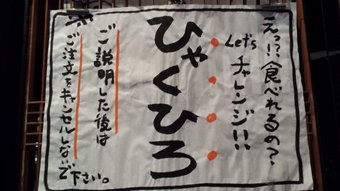 えっ!?食べれるの?
Let's チャレンジ!!
ひゃくひろ
ご説明した後は
ご注文をキャンセルしないで下さい。